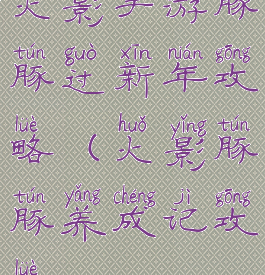 火影手游豚
tún guò xīn nián gōng
豚过新年攻
lüè huǒ yǐng tún
略（火影豚
tún yǎng chéng jì gōng
豚养成记攻
lüè